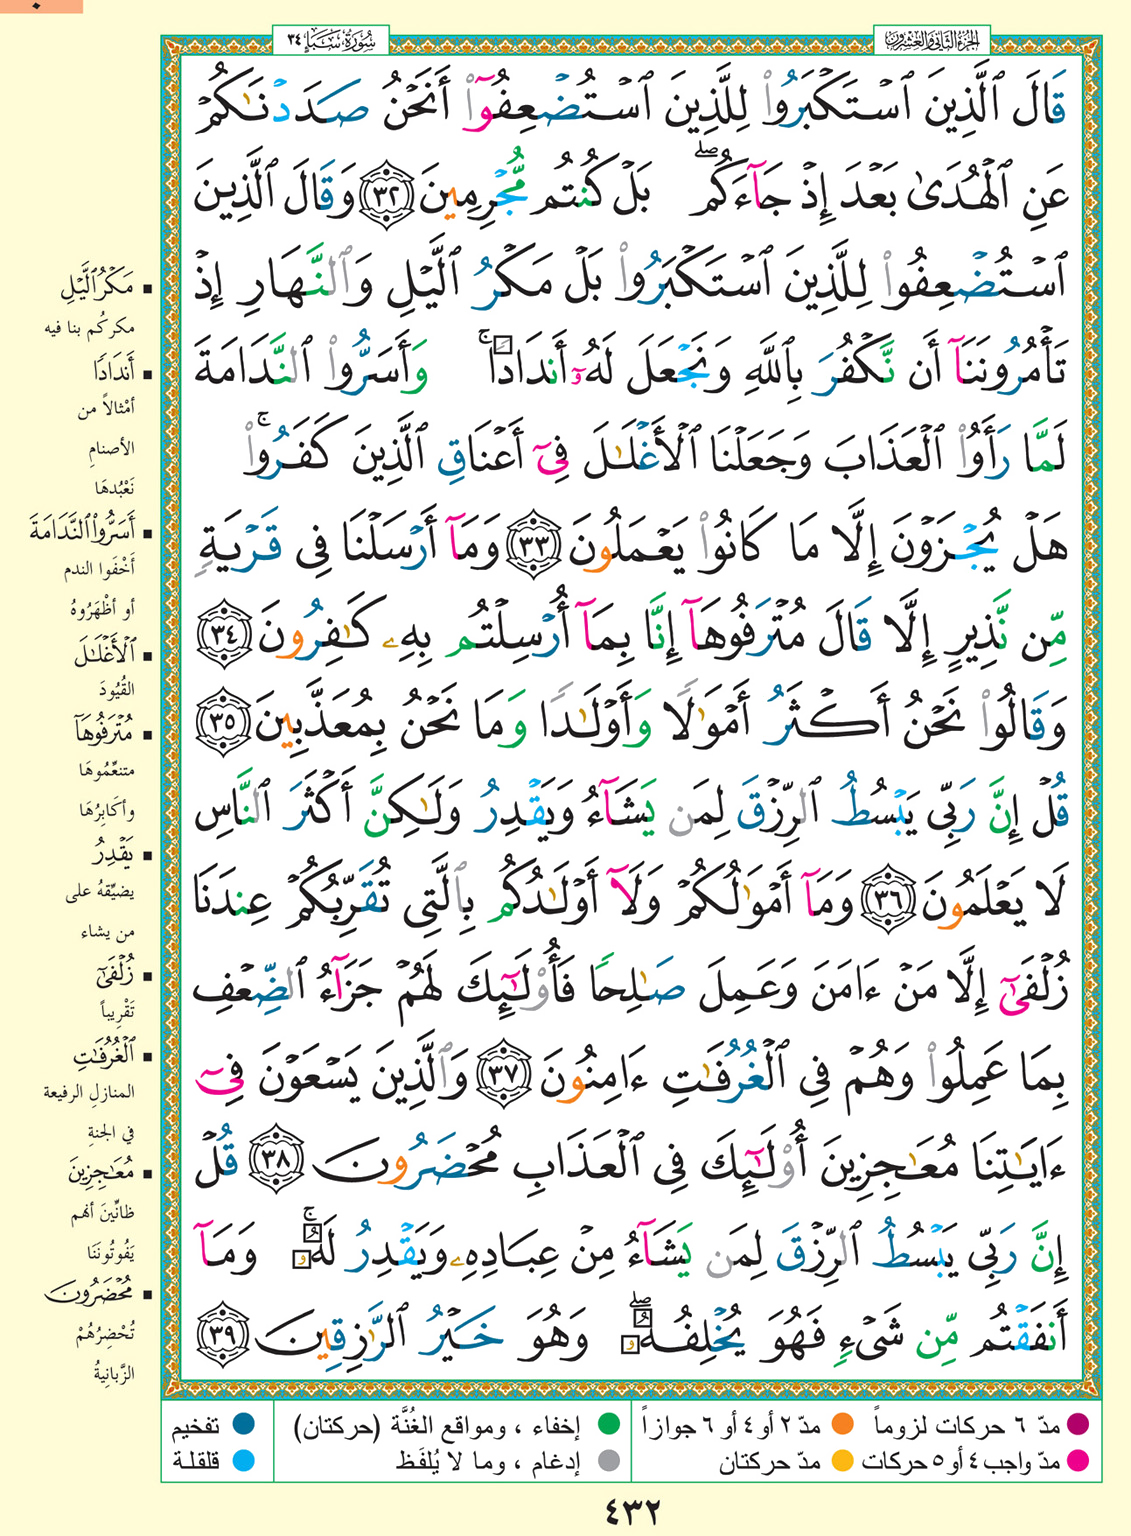 الجزء الثاني والعشرون
سُورَةُ سَبَإٍ ٣٤
قَالَ ٱلَّذِينَ ٱسْتَكْبَرُوا۟ لِلَّذِينَ ٱسْتُضْعِفُوٓا۟ أَنَحْنُ صَدَدْنَٰكُمْ
عَنِ ٱلْهُدَىٰ بَعْدَ إِذْ جَآءَكُم ۖ بَلْ كُنتُم مُّجْرِمِينَ ﴿٣٢﴾ وَقَالَ ٱلَّذِينَ
ٱسْتُضْعِفُوا۟ لِلَّذِينَ ٱسْتَكْبَرُوا۟ بَلْ مَكْرُ ٱلَّيْلِ وَٱلنَّهَارِ إِذْ
تَأْمُرُونَنَآ أَن نَّكْفُرَ بِٱللَّهِ وَنَجْعَلَ لَهُۥٓ أَندَادًا ۚ وَأَسَرُّوا۟ ٱلنَّدَامَةَ
لَمَّا رَأَوُا۟ ٱلْعَذَابَ وَجَعَلْنَا ٱلْأَغْلَٰلَ فِىٓ أَعْنَاقِ ٱلَّذِينَ كَفَرُوا۟ ۚ
هَلْ يُجْزَوْنَ إِلَّا مَا كَانُوا۟ يَعْمَلُونَ ﴿٣٣﴾ وَمَآ أَرْسَلْنَا فِى قَرْيَةٍ
مِّن نَّذِيرٍ إِلَّا قَالَ مُتْرَفُوهَآ إِنَّا بِمَآ أُرْسِلْتُم بِهِۦ كَٰفِرُونَ ﴿٣٤﴾
وَقَالُوا۟ نَحْنُ أَكْثَرُ أَمْوَٰلًا وَأَوْلَٰدًا وَمَا نَحْنُ بِمُعَذَّبِينَ ﴿٣٥﴾
قُلْ إِنَّ رَبِّى يَبْسُطُ ٱلرِّزْقَ لِمَن يَشَآءُ وَيَقْدِرُ وَلَٰكِنَّ أَكْثَرَ ٱلنَّاسِ
لَا يَعْلَمُونَ ﴿٣٦﴾ وَمَآ أَمْوَٰلُكُمْ وَلَآ أَوْلَٰدُكُم بِٱلَّتِى تُقَرِّبُكُمْ عِندَنَا
زُلْفَىٰٓ إِلَّا مَنْ ءَامَنَ وَعَمِلَ صَٰلِحًا فَأُو۟لَٰٓئِكَ لَهُمْ جَزَآءُ ٱلضِّعْفِ
بِمَا عَمِلُوا۟ وَهُمْ فِى ٱلْغُرُفَٰتِ ءَامِنُونَ ﴿٣٧﴾ وَٱلَّذِينَ يَسْعَوْنَ فِىٓ
ءَايَٰتِنَا مُعَٰجِزِينَ أُو۟لَٰٓئِكَ فِى ٱلْعَذَابِ مُحْضَرُونَ ﴿٣٨﴾ قُلْ
إِنَّ رَبِّى يَبْسُطُ ٱلرِّزْقَ لِمَن يَشَآءُ مِنْ عِبَادِهِۦ وَيَقْدِرُ لَهُۥ ۚ وَمَآ
أَنفَقْتُم مِّن شَىْءٍ فَهُوَ يُخْلِفُهُۥ ۖ وَهُوَ خَيْرُ ٱلرَّٰزِقِينَ ﴿٣٩﴾
▪ مَكْرُ ٱلَّيْلِ
مكركُم بنا فيه
▪ أَندَادًا
أمْثالاً من
الأصنامِ
نَعْبُدهَا
▪ أَسَرُّوا۟ ٱلنَّدَامَةَ
أَخْفَوا الندم
أو أظْهَرُوهُ
▪ ٱلْأَغْلَٰلَ
القُيُودَ
▪ مُتْرَفُوهَآ
متنعِّمُوهَا
وأكابِرُهَا
▪ يَقْدِرُ
يضيِّقهُ على
من يشاء
▪ زُلْفَىٰٓ
تَقْرِيباً
▪ ٱلْغُرُفَٰتِ
المنازل الرفيعة
في الجنةِ
▪ مُعَٰجِزِينَ
ظانِّينَ أنهم
يَفُوتُونَنَا
▪ مُحْضَرُونَ
تُحْضِرُهُمْ
الزَّبانِيةُ
مدّ ٦ حركات لزوماً مدّ ٢ أو ٤ أو ٦ جوازاً إخفاء ، ومواقع الغُنَّة (حركتان) تفخيم
مدّ واجب ٤ أو ٥ حركات مدّ حركتان إدغام ، وما لا يُلفَظ قلقلة
٤٣٢